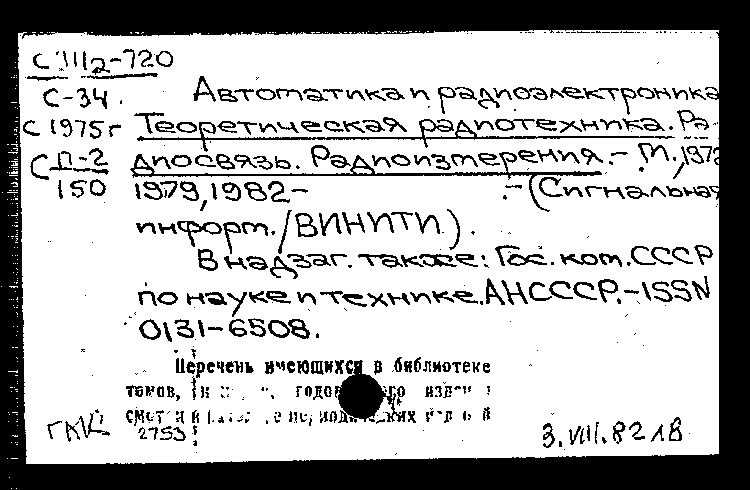 С III 2-720
С-34. Автоматика и радиоэлектроника
С 1975 г Теоретическая радиотехника. Ра-
С П-2 диосвязь. Радиоизмерения. - М., 1972
150 1979, 1982- .- (Сигнальная
информ. / ВИНИТИ).
В надзаг. также: Гос. ком. СССР
по науке и технике, АН СССР. - ISSN
0131-6508.
Перечень имеющихся в библиотеке
томов,
ГАК 2753 3.VIII.82 1В